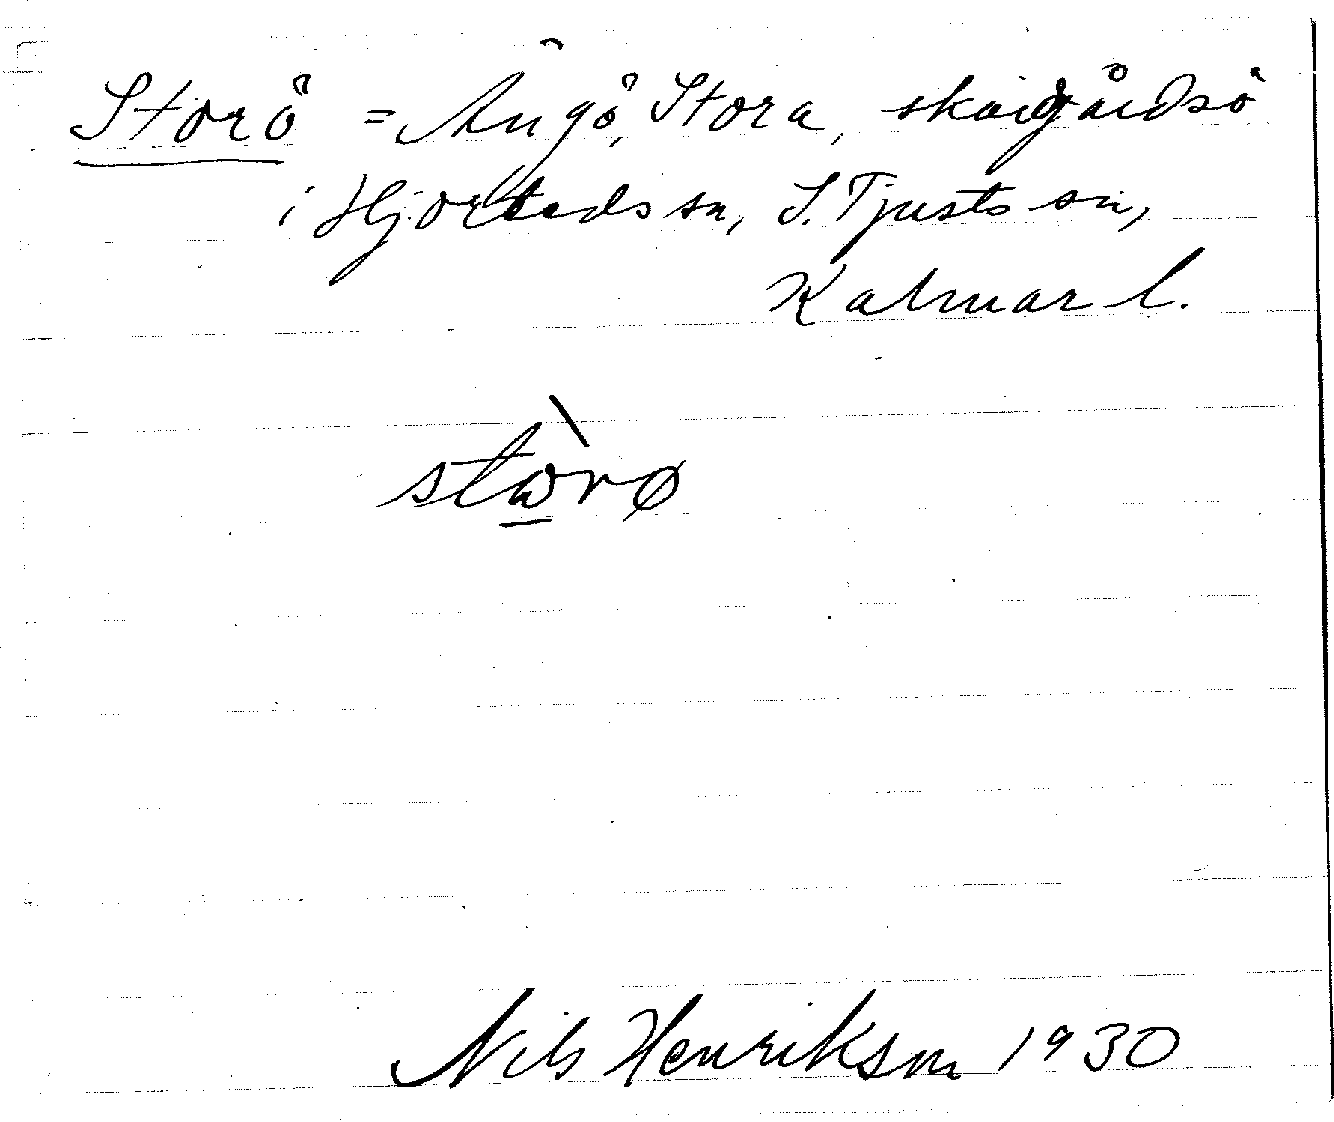 Storö = Ängö, Stora, skärgårdsö
i Hjorteds sn, S. Tjusts sn,
Kalmar l.
stὼ̱rø
Nils Henrikson 1930